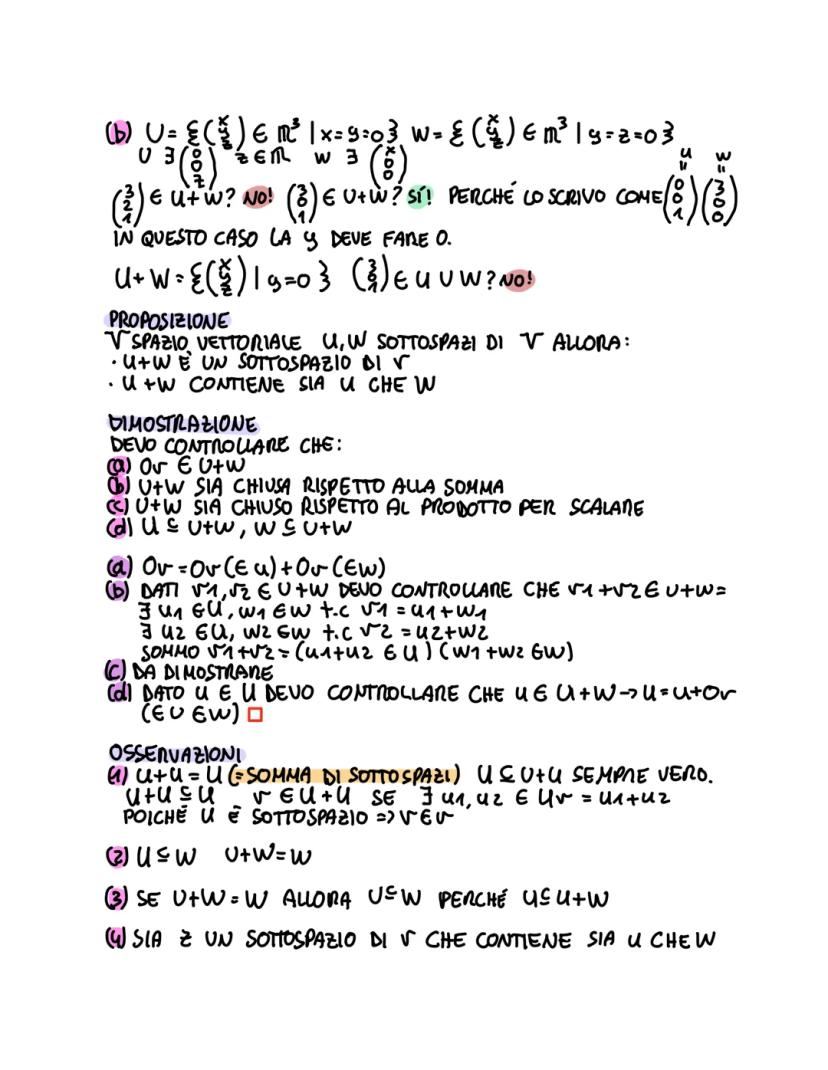 (b) U = {(x y z) ∈ ℝ³ | x=y=0} W = {(x y z) ∈ ℝ³ | y=z=0}
U ∋ (0 0 z) z∈ℝ W ∋ (x 0 0) u = w =
(3 2 1) ∈ U+W? NO! (3 0 1) ∈ U+W? SÍ! PERCHÉ LO SCRIVO COME (0 0 1) (3 0 0)
IN QUESTO CASO LA y DEVE FARE 0.
U+W = {(x y z) | y=0 } (3 0 1) ∈ U ∪ W? NO!
PROPOSIZIONE
V SPAZIO VETTORIALE U,W SOTTOSPAZI DI V ALLORA:
· U+W È UN SOTTOSPAZIO DI V
· U+W CONTIENE SIA U CHE W
DIMOSTRAZIONE
DEVO CONTROLLARE CHE:
(a) 0v ∈ U+W
(b) U+W SIA CHIUSA RISPETTO ALLA SOMMA
(c) U+W SIA CHIUSO RISPETTO AL PRODOTTO PER SCALARE
(d) U ⊆ U+W, W ⊆ U+W
(a) 0v = 0v (∈ U) + 0v (∈W)
(b) DATI v1,v2 ∈ U+W DEVO CONTROLLARE CHE v1+v2 ∈ U+W=
∃ u1 ∈U, w1 ∈W t.c v1 = u1+w1
∃ u2 ∈U, w2 ∈W t.c v2 = u2+w2
SOMMO v1+v2 = (u1+u2 ∈ U) (w1+w2 ∈W)
(c) DA DIMOSTRARE
(d) DATO u ∈ U DEVO CONTROLLARE CHE u ∈ U+W → u = u+0v
(∈U ∈W) □
OSSERVAZIONI
(1) U+U = U (=SOMMA DI SOTTOSPAZI) U ⊆ U+U SEMPRE VERO.
U+U ⊆ U v ∈ U+U SE ∃ u1,u2 ∈ U v = u1+u2
POICHÉ U È SOTTOSPAZIO => v ∈ v
(2) U ⊆ W U+W = W
(3) SE U+W = W ALLORA U⊆W PERCHÉ U⊆U+W
(4) SIA Z UN SOTTOSPAZIO DI V CHE CONTIENE SIA U CHE W